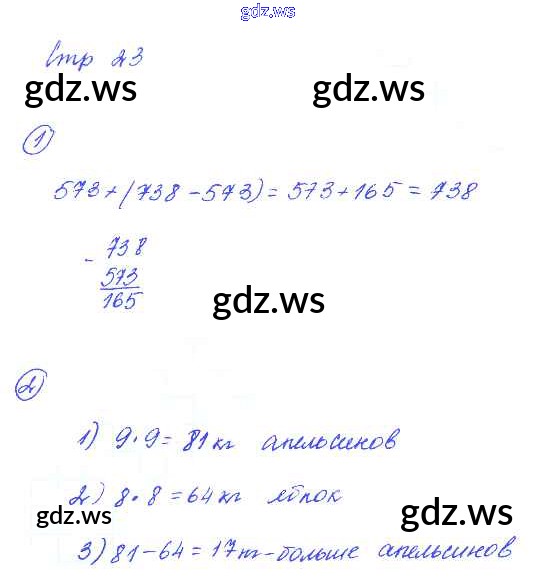 gdz.ws
Стр 23
gdz.ws gdz.ws
1
573+(738-573)=573+165=738
- 738
573
165
gdz.ws
2
1) 9·9=81кг апельсинов
2) 8·8=64кг яблок
gdz.ws gdz.ws
3) 81-64=17кг-больше апельсинов